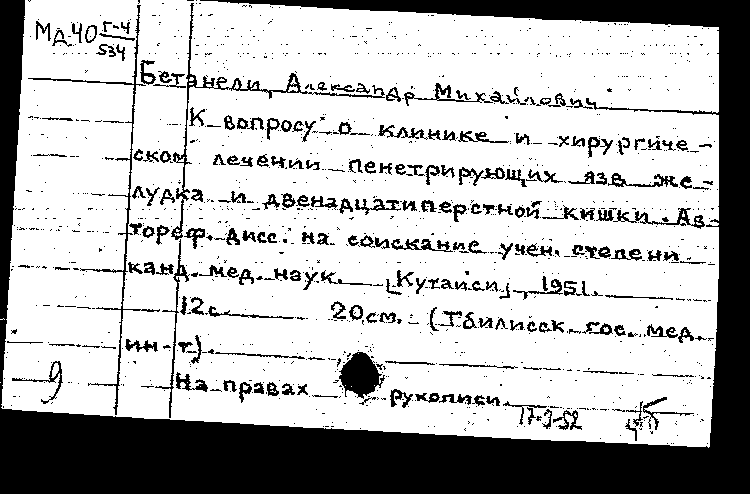 МД40 Г-4/534
Бетанели, Александр Михайлович
К вопросу о клинике и хирургиче-
ском лечении пенетрирующих язв же-
лудка и двенадцатиперстной кишки. Ав-
тореф. дисс. на соискание учен. степени
канд. мед. наук. [Кутаиси], 1951.
12с. 20см. (Тбилисск. гос. мед.
ин-т).
На правах рукописи.
9